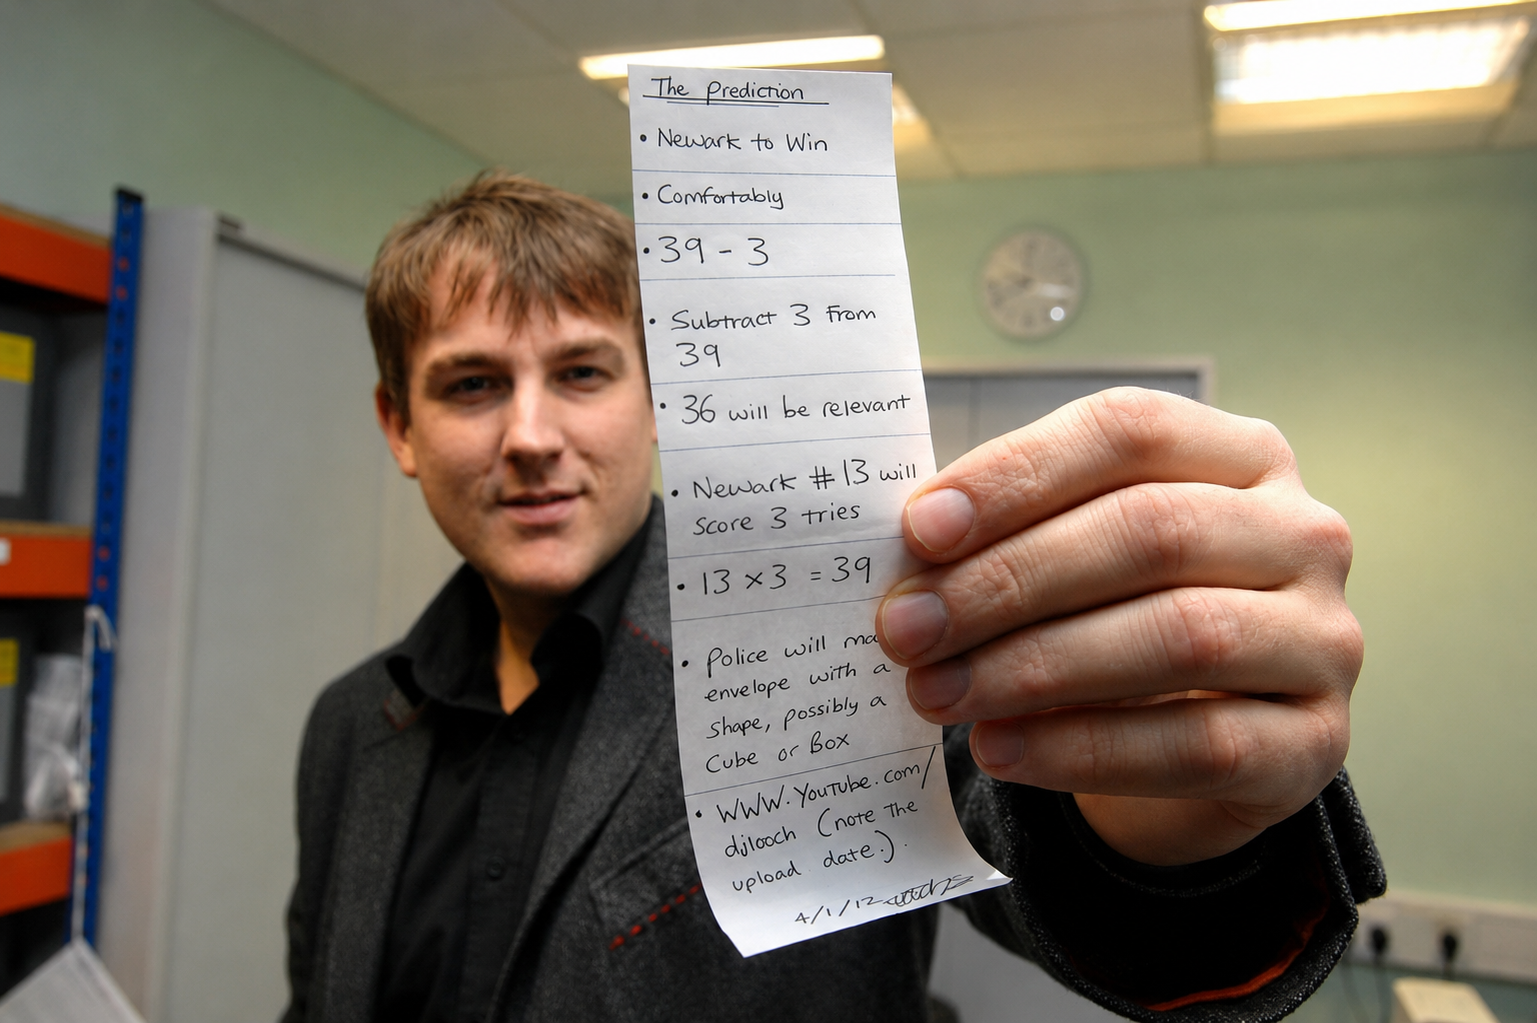 The Prediction
• Newark to Win
• Comfortably
• 39 - 3
• Subtract 3 from
39
• 36 will be relevant
• Newark #13 will
score 3 tries
• 13 x 3 = 39
• Police will
envelope with a
shape, possibly a
Cube or Box
• WWW.YouTube.com/
djlooch (note the
upload date.).
4/1/12